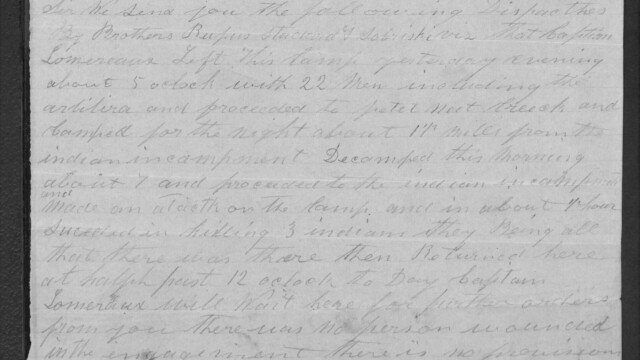 Sir We send you the following Dispatches
By Brothers Rufus Stuckard & viz that Captian
Lomereaux Left This Camp yesterday evening
about 5 oclock with 22 men including the
artilira and proceeded to peteet neet Creek and
Camped for the night about 1½ miles from the
indian incampment Decamped this morning
about 7 and proceeded to the indian incampment
and made an atacth on the Camp and in about 1 hour
Suceded in killing 3 indians they being all
that there was there then Returned here
at halph past 12 oclock to Day Captain
Lomereaux will Wait here for further orders
from you there was no person wounded
in the engagement there is no provision